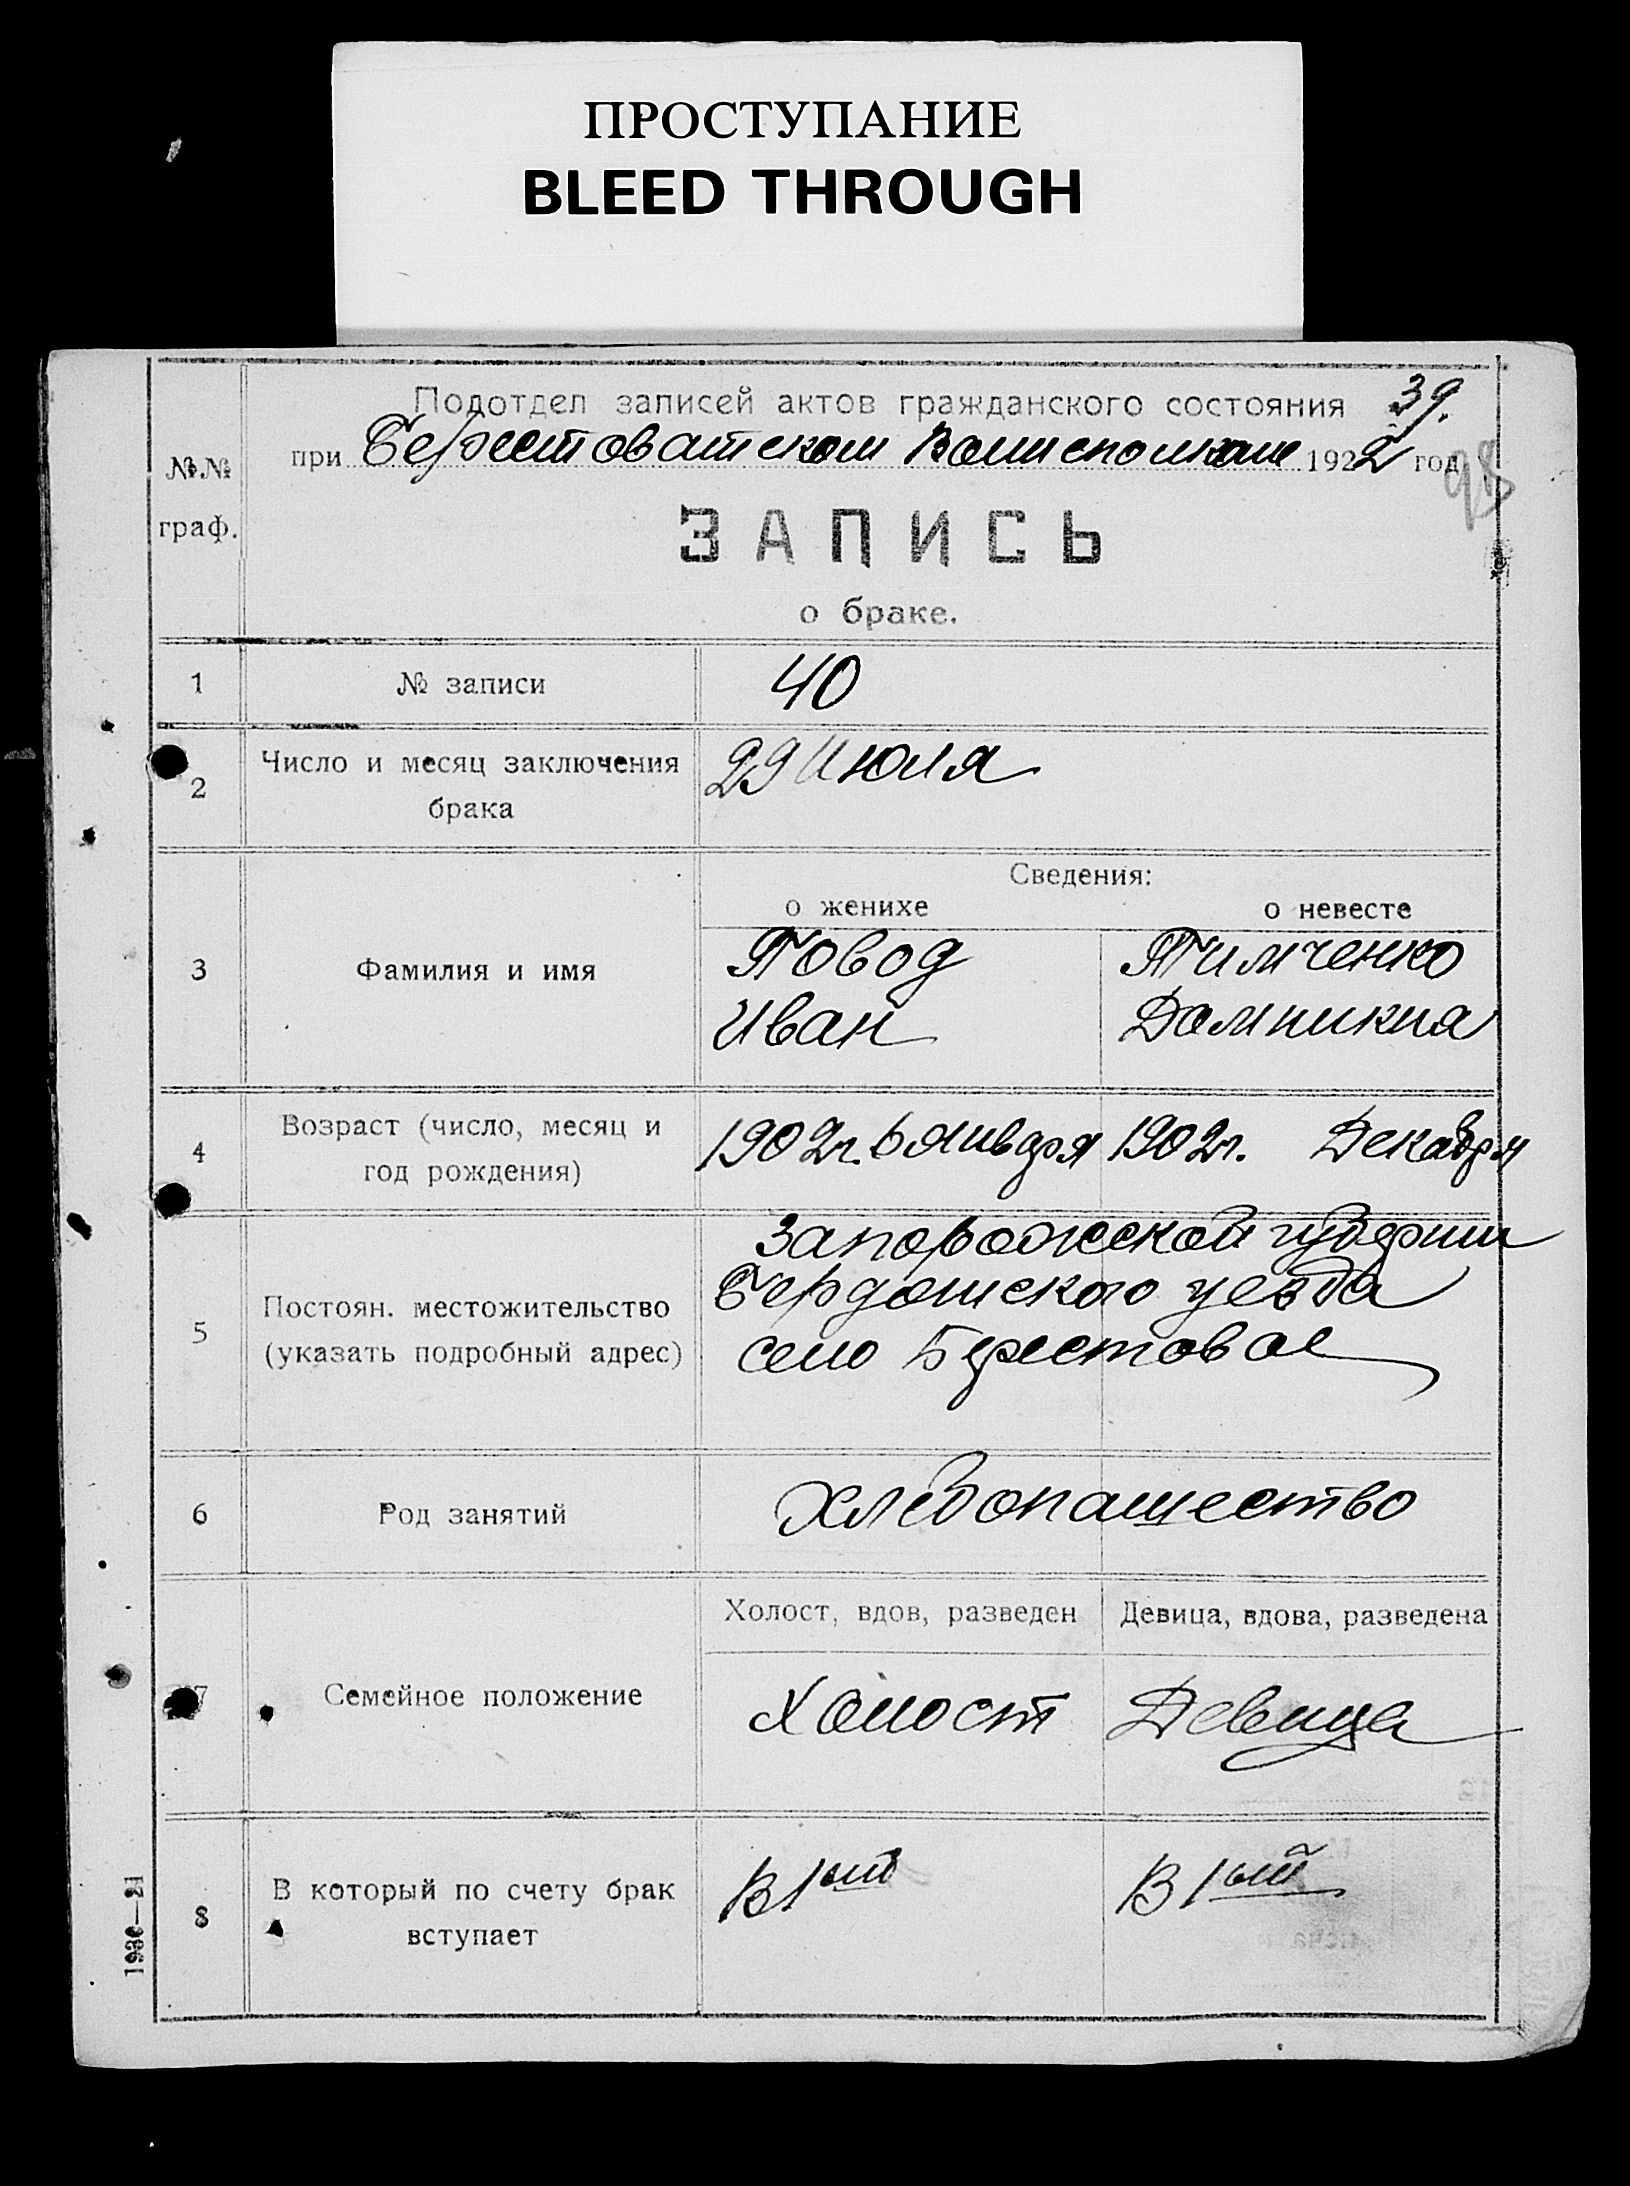 ПРОСТУПАНИЕ
BLEED THROUGH
39.
98
№№ граф.
Подотдел записей актов гражданского состояния
при Берестоватском Волисполкоме 1922 год
ЗАПИСЬ
о браке.
1 № записи 40
2 Число и месяц заключения брака 29 Июля
Сведения:
о женихе о невесте
3 Фамилия и имя
Повод Тимченко
Иван Домникия
4 Возраст (число, месяц и год рождения)
1902г. 6 Января 1902г. Декабря
5 Постоян. местожительство (указать подробный адрес)
Запорожской губернии
Бердянского уезда
село Берестовое
6 Род занятий Хлебопашество
Холост, вдов, разведен Девица, вдова, разведена
7 Семейное положение Холост Девица
8 В который по счету брак вступает В 1ый В 1ый